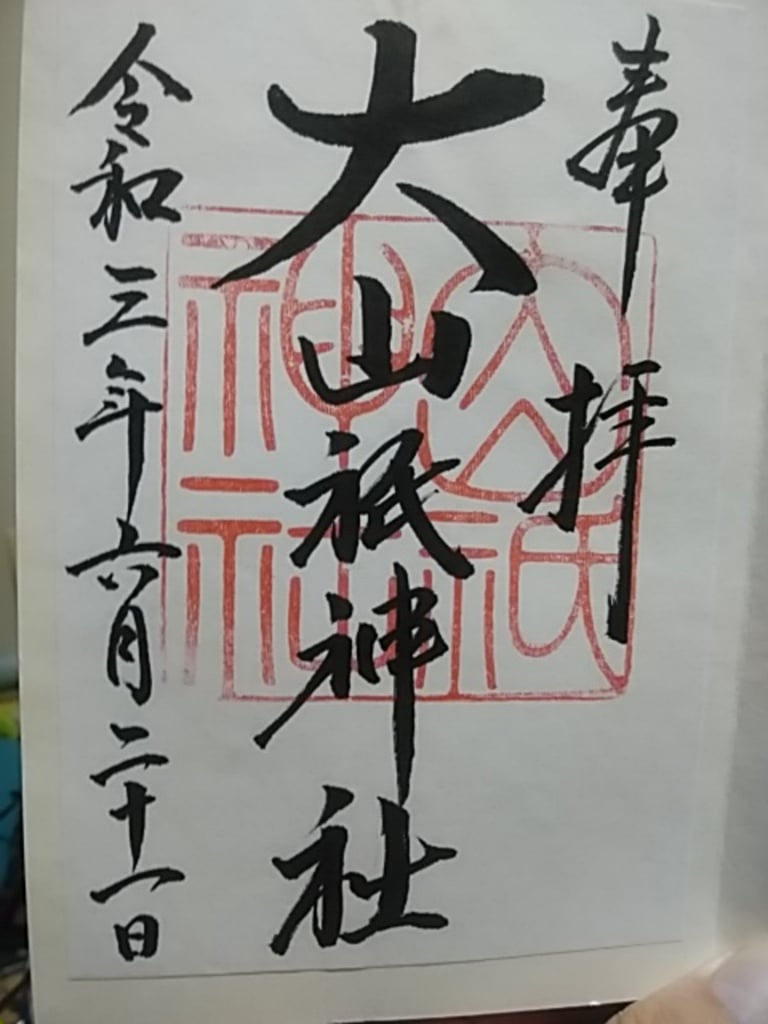 奉拝
大山祇神社
令和三年六月二十一日
大山祇神社